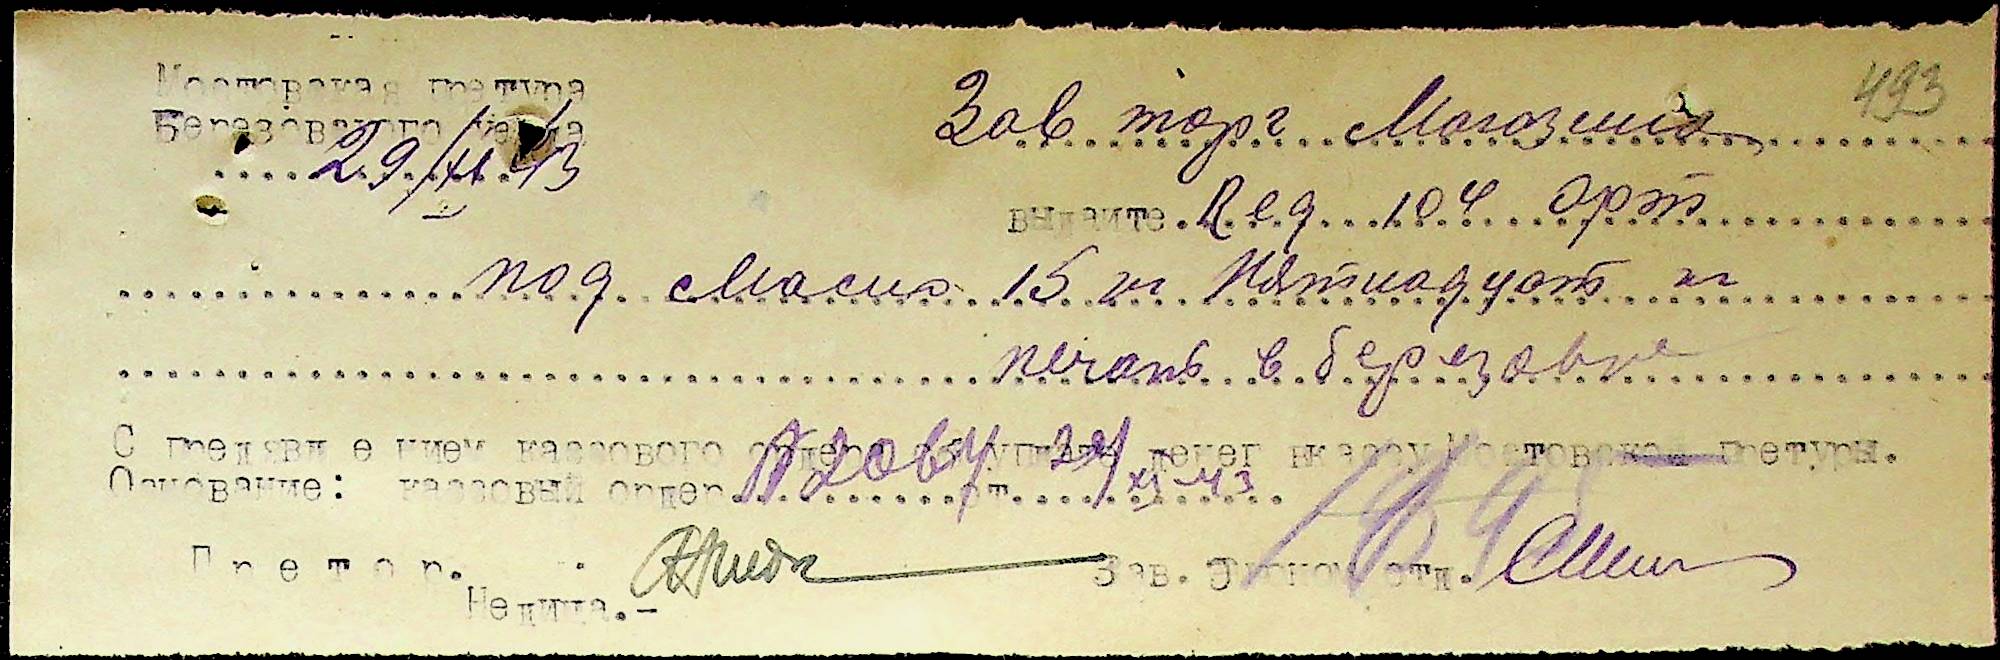 493
Мостовская претура
Березовского
29/XI 43
Зав торг Магозина
выдайте Ред 104 орт
под Масло 15 кг Пятнадцат кг
печать в березовке
С предявл е нием кассового ордера об уплате денег в кассу Мостовской претуры.
Основание: кассовый ордер от 29/XI-43
П р е т о р.
Зав. Эконом отд.
Нелипа.-